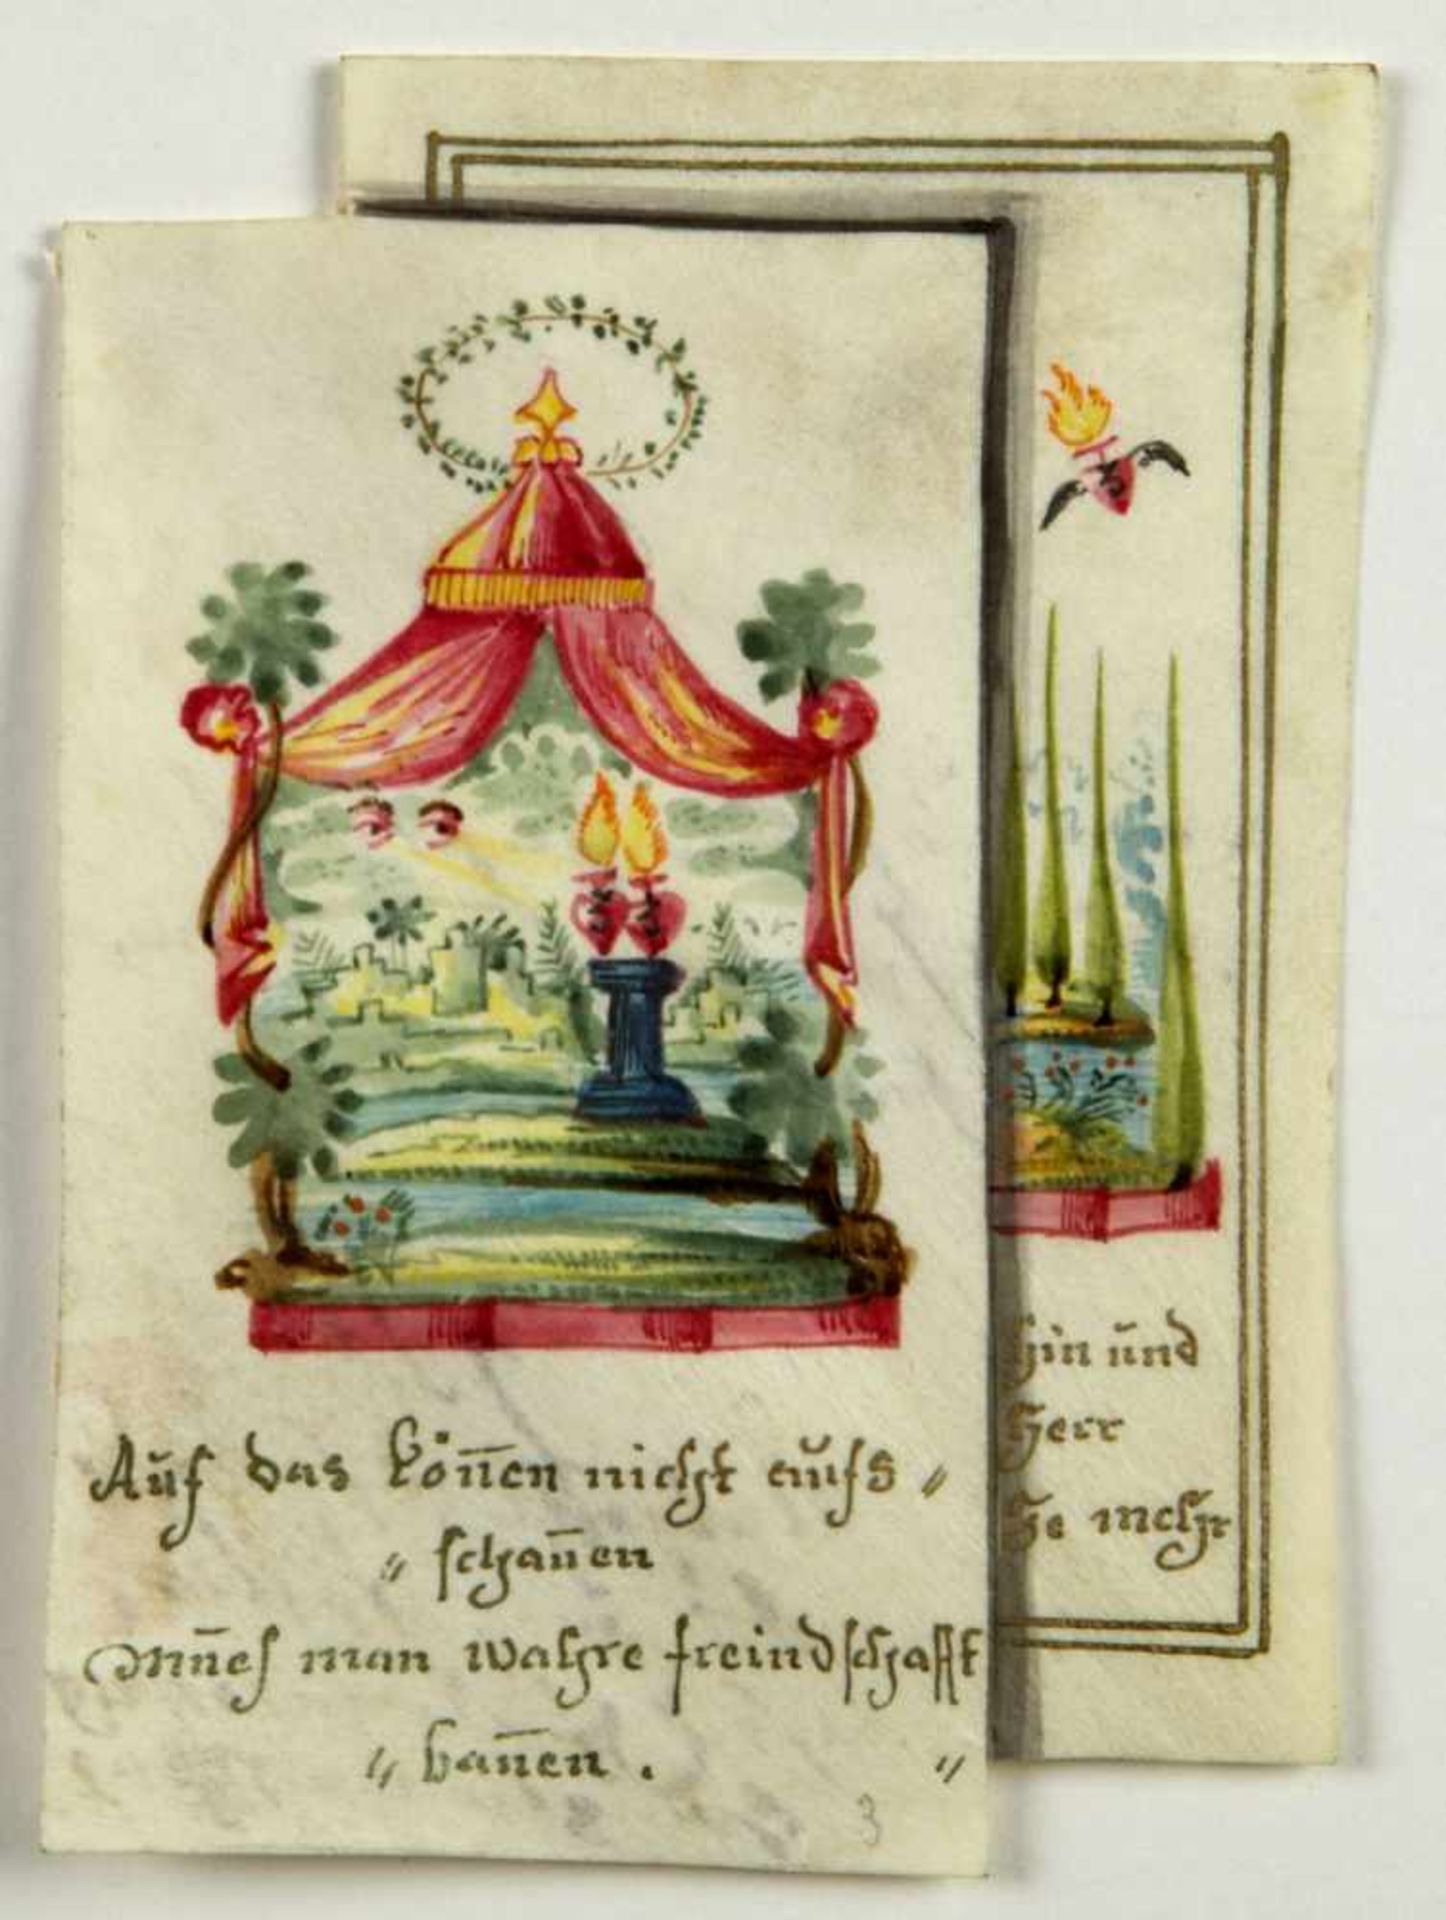 Auf das können nicht aufs〃
〃 schauen
Mues man wahre freindschafft
〃 bauen . 〃
3
hin und
Herr
he mehr